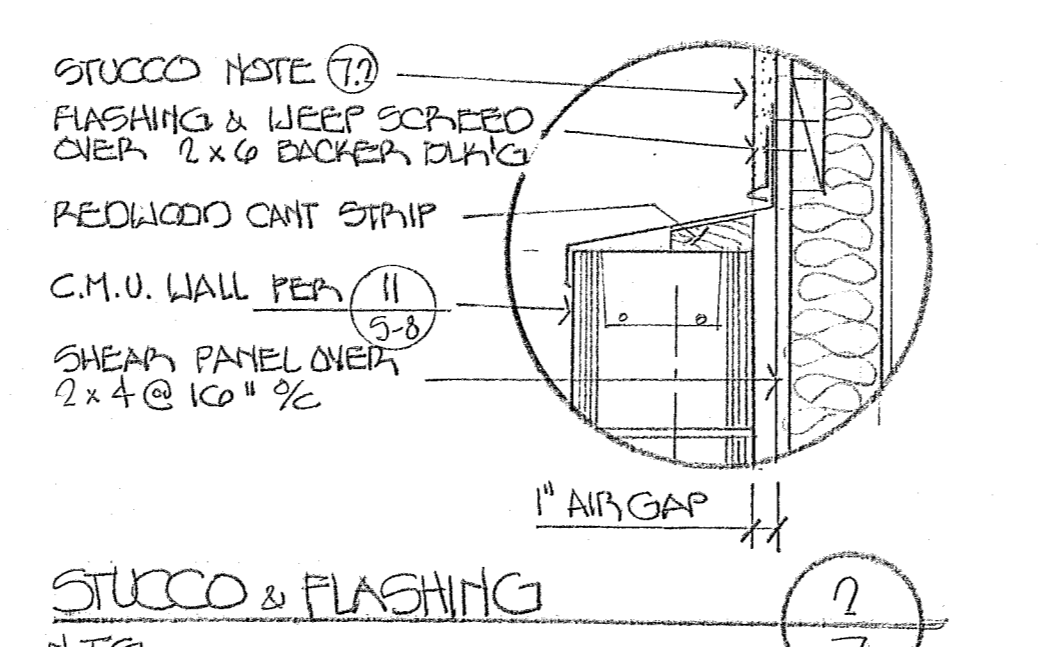 STUCCO NOTE 7.2
FLASHING & WEEP SCREED
OVER 2x6 BACKER BLK'G
REDWOOD CANT STRIP
C.M.U. WALL PER 11
S-8
SHEAR PANEL OVER
2x4 @ 16" o/c
1" AIR GAP
STUCCO & FLASHING
2